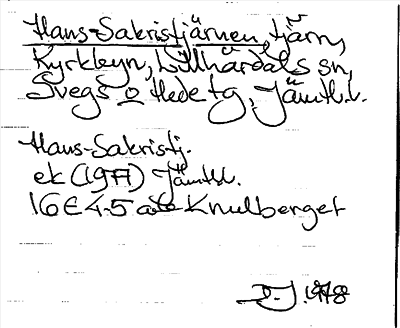 Hans-Sakristjärnen, tjärn,
Kyrkbyn, Lillhärdals sn,
Svegs o Hede tg, Jämtl. l.
Hans-Sakristj.
ek (1971) Jämtl.
16E 4-5 a Knulberget
D.J. 1978